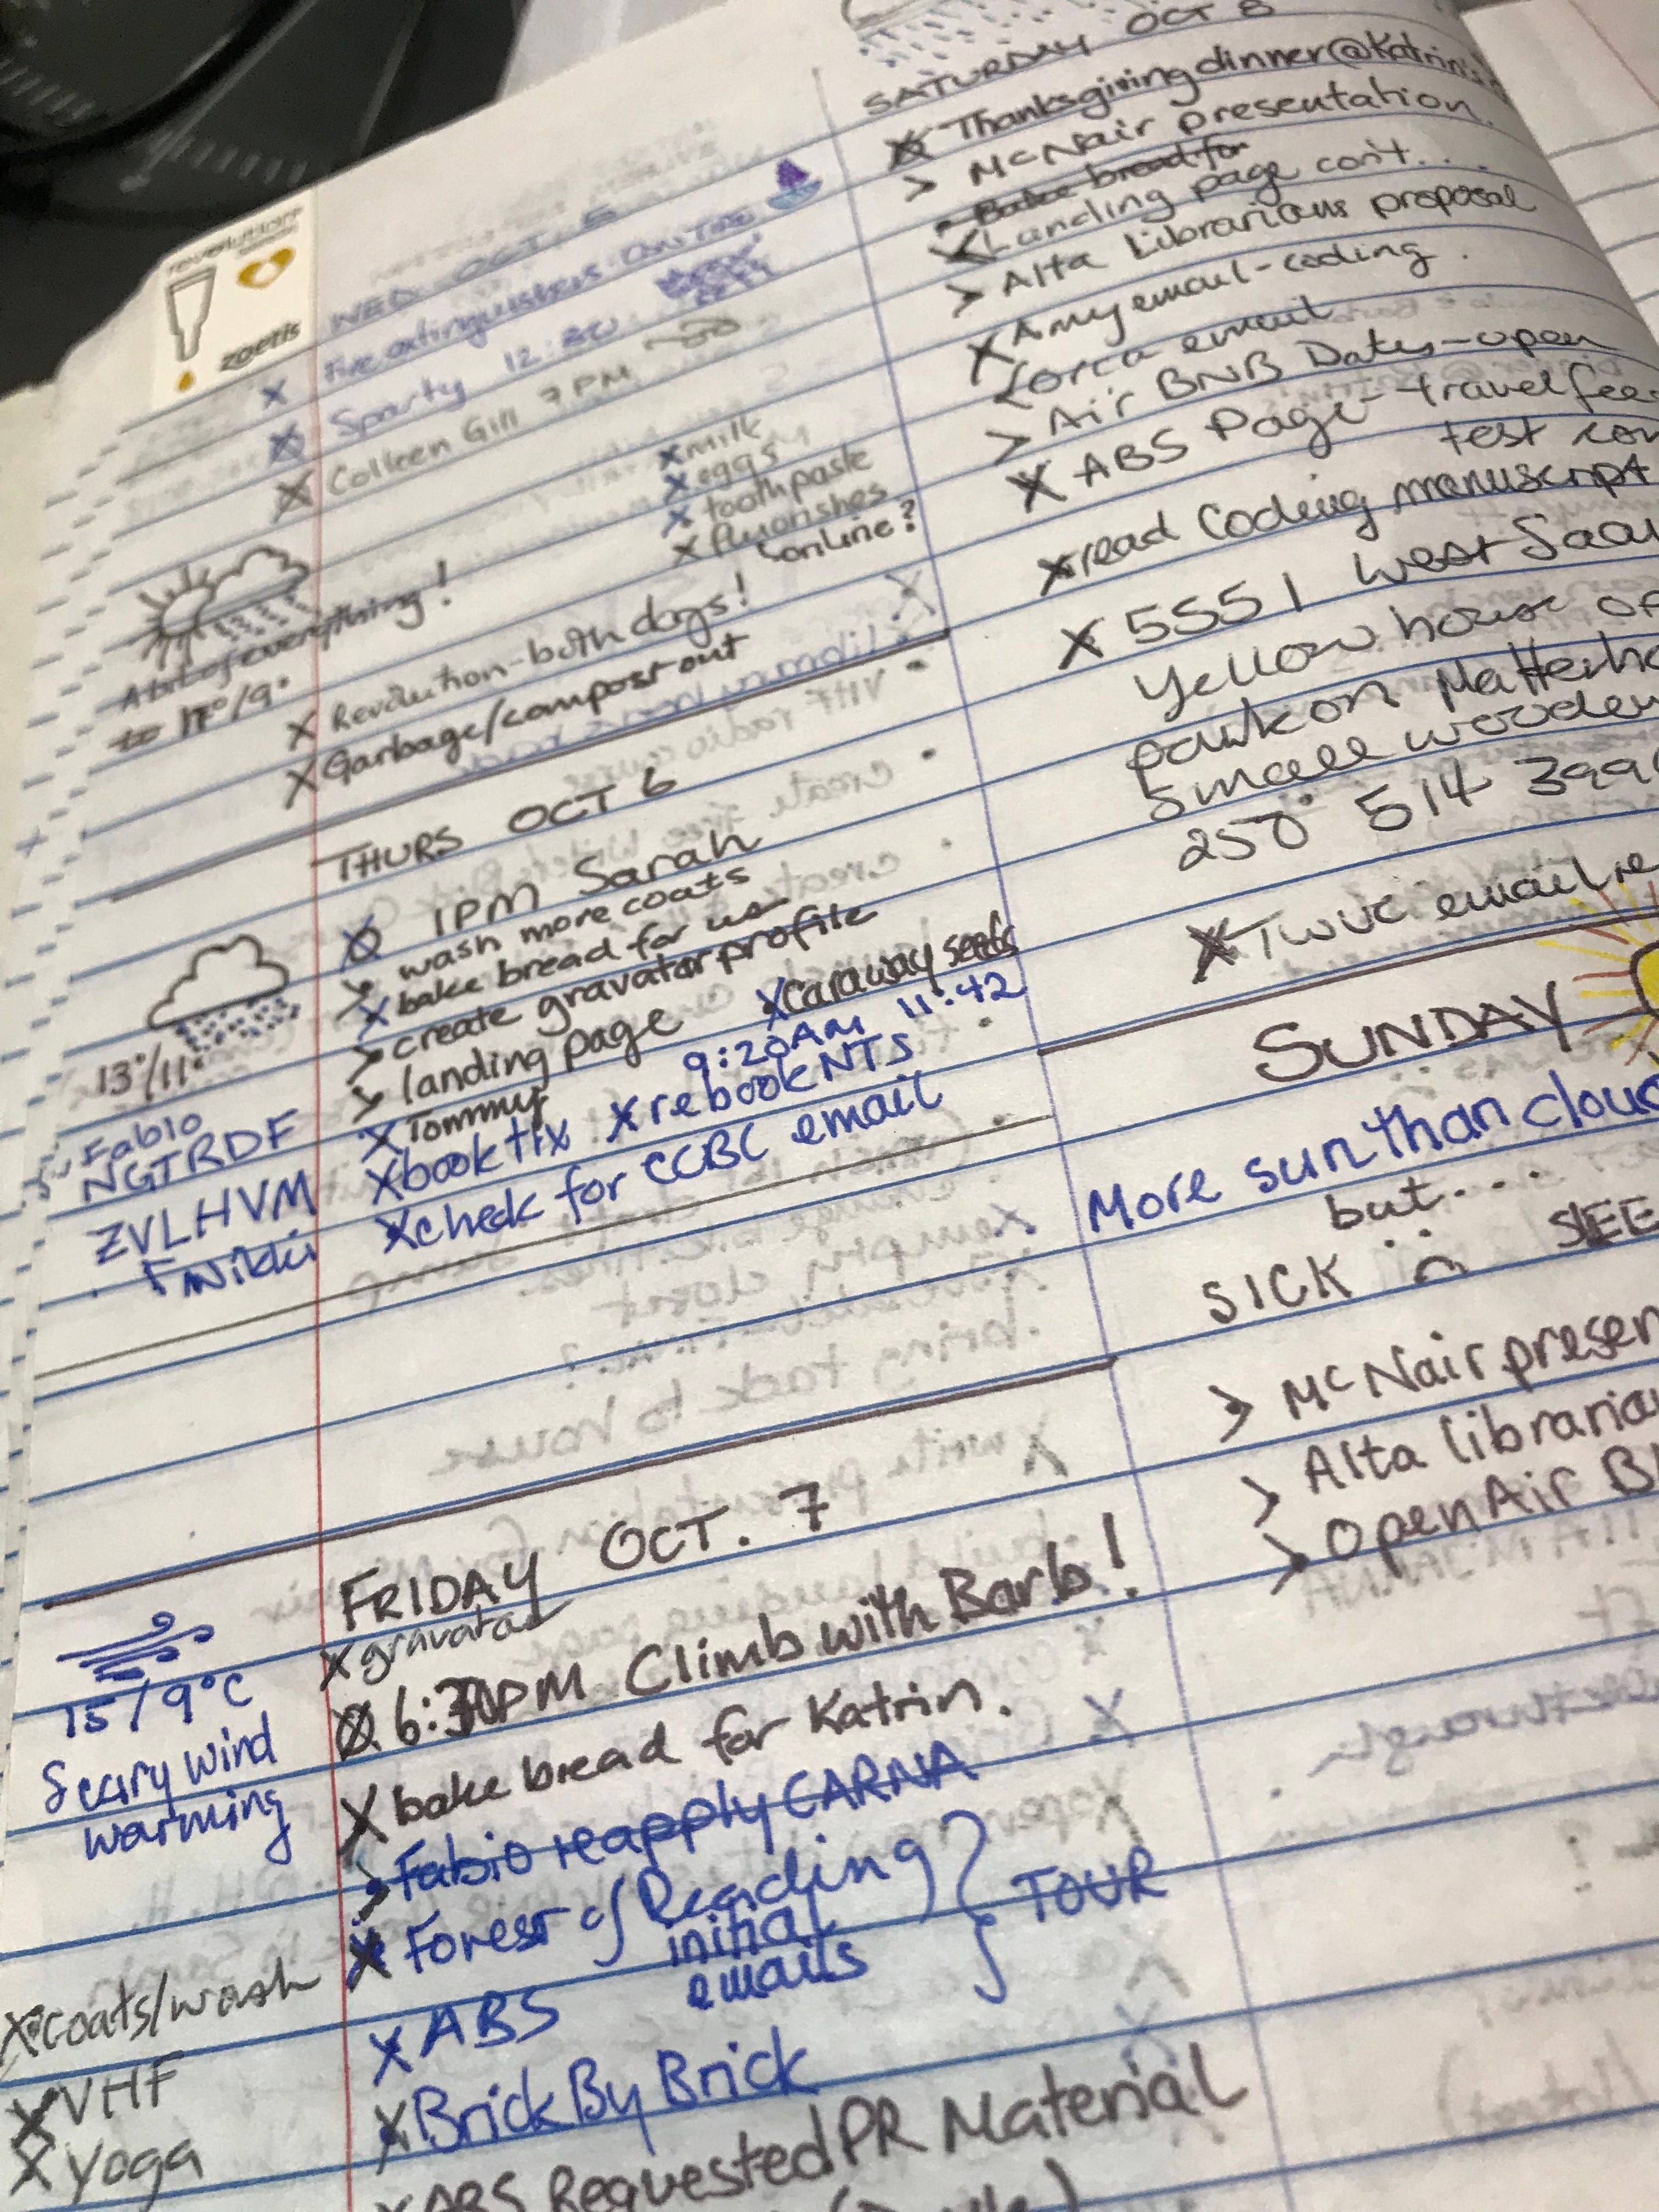 revolution
zoetis
WED OCT. 5
x Fire extinguishers
x Sparty 12:30
x Colleen Gill 7 PM
x milk
x eggs
x toothpaste
x
online?
A bit of everything!
to 17°/9°
x Revolution - both dogs!
x Garbage/compost out
THURS OCT 6
1 PM Sarah
> wash more coats
x bake bread for us
> create gravatar profile
> landing page
x caraway seeds
x Tommy
9:20AM 11:42
x book tix x rebook NTS
x check for CCBC email
13°/11°
Fabio
NGTRDF
ZVLHVM
Nikki
FRIDAY OCT. 7
x gravatar
6:30PM Climb with Barb!
x bake bread for Katrin.
> Fabio reapply CARNA
x Forest of Reading
initial
emails
} TOUR
x ABS
x Brick By Brick
x ABS Requested PR Material
15/9°C
Scary wind
warming
x coats/wash
x VHF
x yoga
SATURDAY OCT 8
x Thanksgiving dinner @ Katrin's
> McNair presentation
Bake bread for
x Landing page con't...
> Alta Librarians proposal
x Amy email - coding.
Lorca email
> Air BNB Dates - open
x ABS Page - travel fees
test
x read Coding manuscript
x 5551 West Saan
Yellow house
park on Matterh
small wooden
250 514 399
x TWUC email
SUNDAY
More sun than cloud
but...
SICK SLEE
> McNair presen
> Alta librarian
> Open Air B